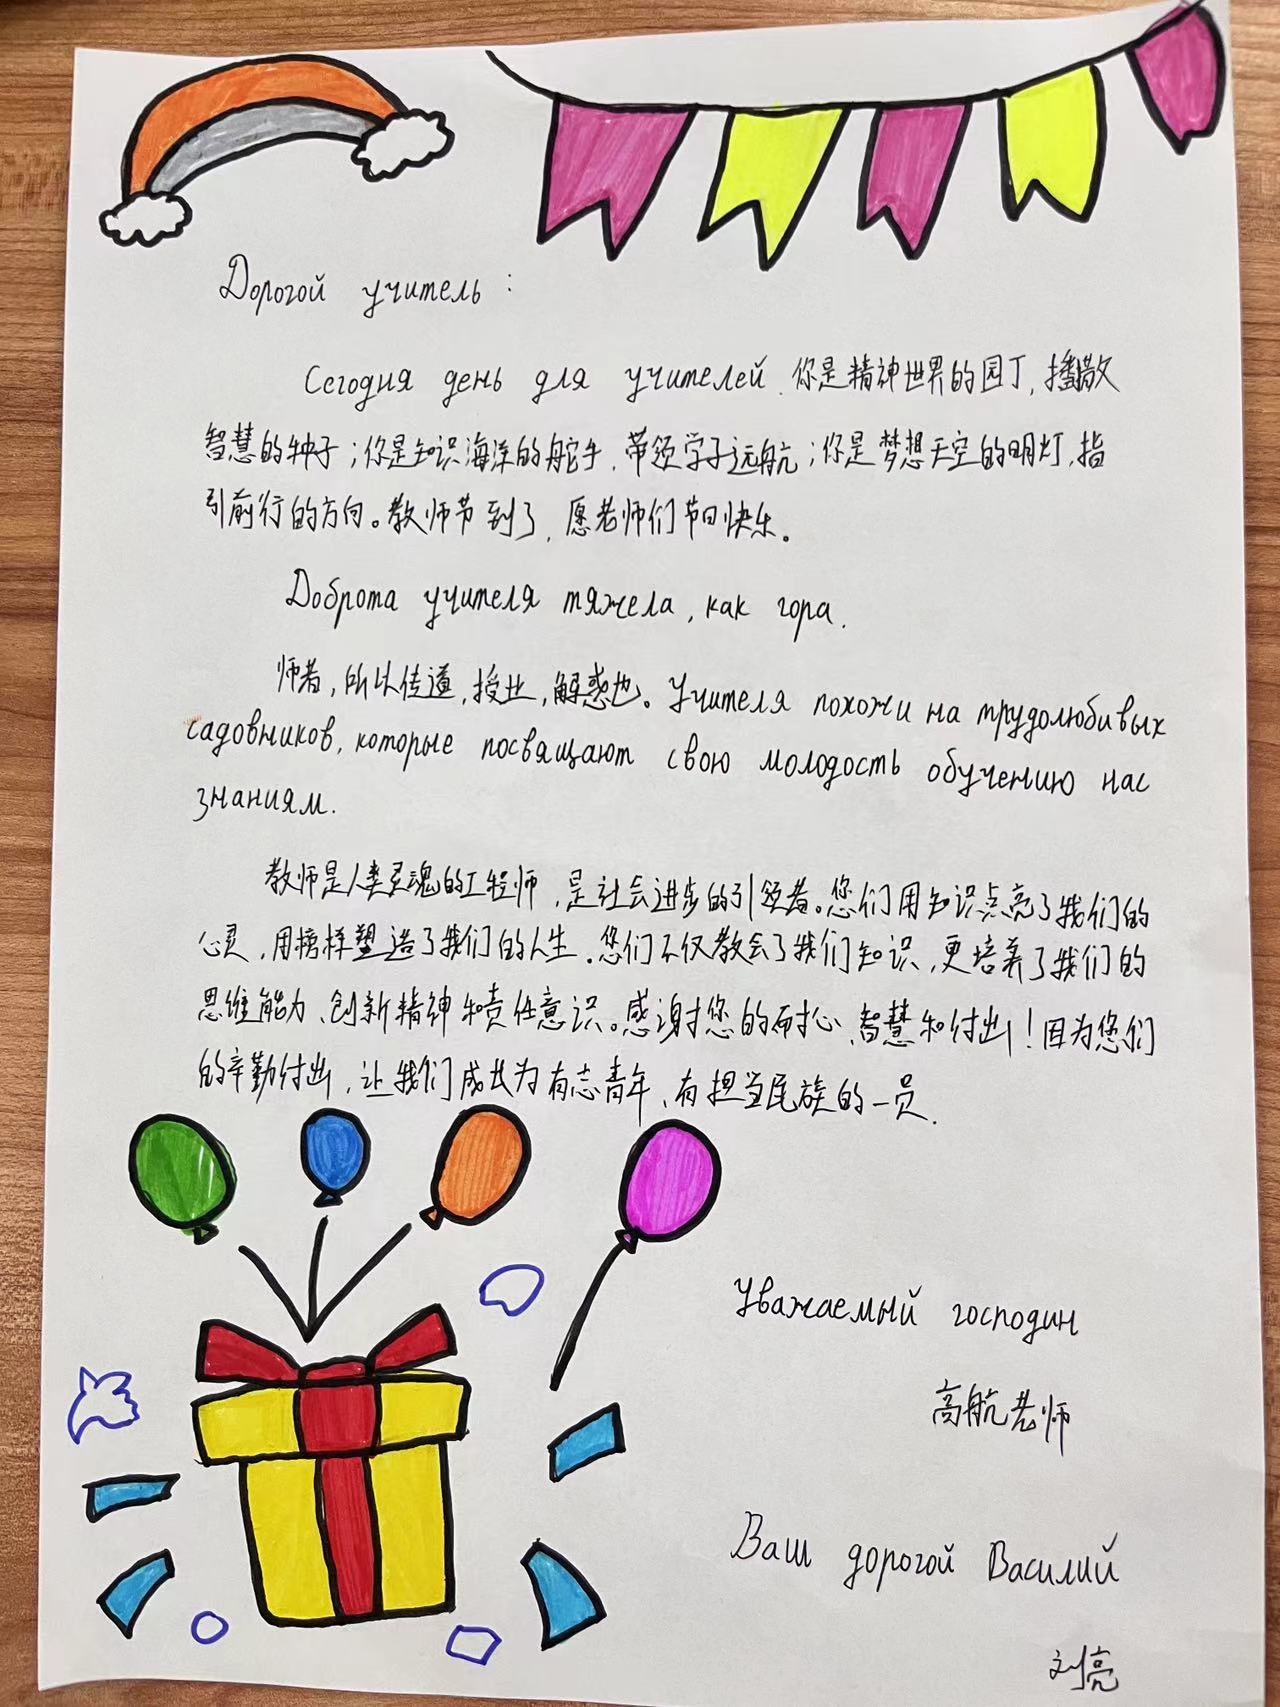 Дорогой учитель:
Сегодня день для учителей. 你是精神世界的园丁,播撒
智慧的种子;你是知识海洋的舵手,带领学子远航;你是梦想天空的明灯,指
引前行的方向。教师节到了,愿老师们节日快乐。
Доброта учителя тяжела, как гора.
师者,所以传道,授业,解惑也。Учителя похожи на трудолюбивых
садовников, которые посвящают свою молодость обучению нас
знаниям.
教师是人类灵魂的工程师,是社会进步的引领者。您们用知识点亮了我们的
心灵,用榜样塑造了我们的人生。您们不仅教会了我们知识,更培养了我们的
思维能力、创新精神和责任意识。感谢您的耐心、智慧和付出!因为您们
的辛勤付出,让我们成长为有志青年、有担当民族的一员.
Уважаемый господин
高航老师
Ваш дорогой Василий
刘亮